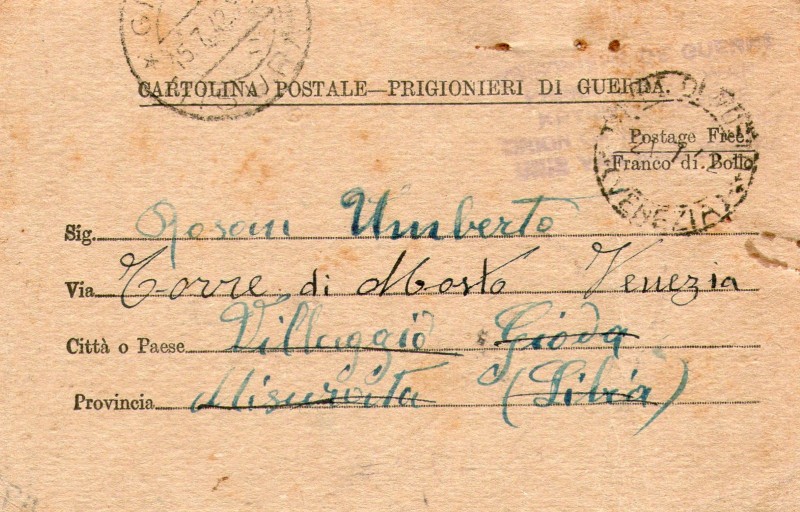 15.7.42
CARTOLINA POSTALE—PRIGIONIERI DI GUERRA.
Postage Free.
Franco di Bollo
VENEZIA
Sig. Rosan Umberto
Via Torre di Mosto Venezia
Città o Paese Villaggio Gioda
Provincia Misurata (Libia)